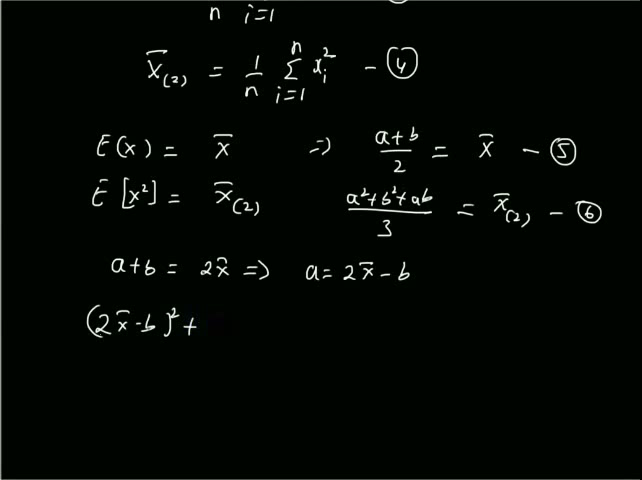 n i=1
x̄(2) = 1/n n∑i=1 xi² - ④
E(x) = x̄ => a+b/2 = x̄ - ⑤
E[x²] = x̄(2) a²+b²+ab/3 = x̄(2) - ⑥
a+b = 2x̄ => a = 2x̄ - b
(2x̄-b)² +